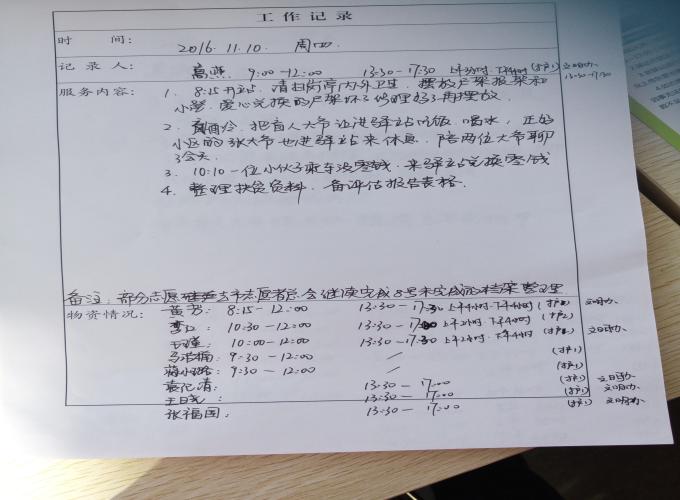 工作记录
时 间: 2016.11.10. 周四.
记录人: 高燕 9:00-12:00 13:30-17:30 上午3小时.下午4小时(护1) 文明办、
13:30-17:30
服务内容: 1. 8:15开站. 清扫岗亭内外卫生. 摆放户架报架和
小凳. 爱心兑换的户架坏了修理好了再摆放.
2. 把盲人大爷让进驿站吃饭、喝水,
小区的张大爷也进驿站来休息. 陪两位大爷聊
了会天.
3. 10:10一位小伙子乘车没零钱. 来驿站兑换零钱
4. 整理扶贫资料. 备评估报告表格.
备注: 部分志愿 去市志愿者总会继续完成8号未完成的档案整理.
物资情况: 黄芳: 8:15-12:00 13:30-17:30 上午4小时.下午4小时 (护2) 文明办、
10:30-12:00 13:30-17:30 上午2小时.下午4小时 (护2)
10:00-12:00 13:30-17:30 上午2小时.下午4小时 (护2) 文明办、
9:30-12:00 / (护1)
9:30-12:00 / (护1)
13:30-17:00 (护1) 文明办、
13:30-17:00 (护1) 文明办、
张福国: 13:30-17:00 (护1) 文明办、